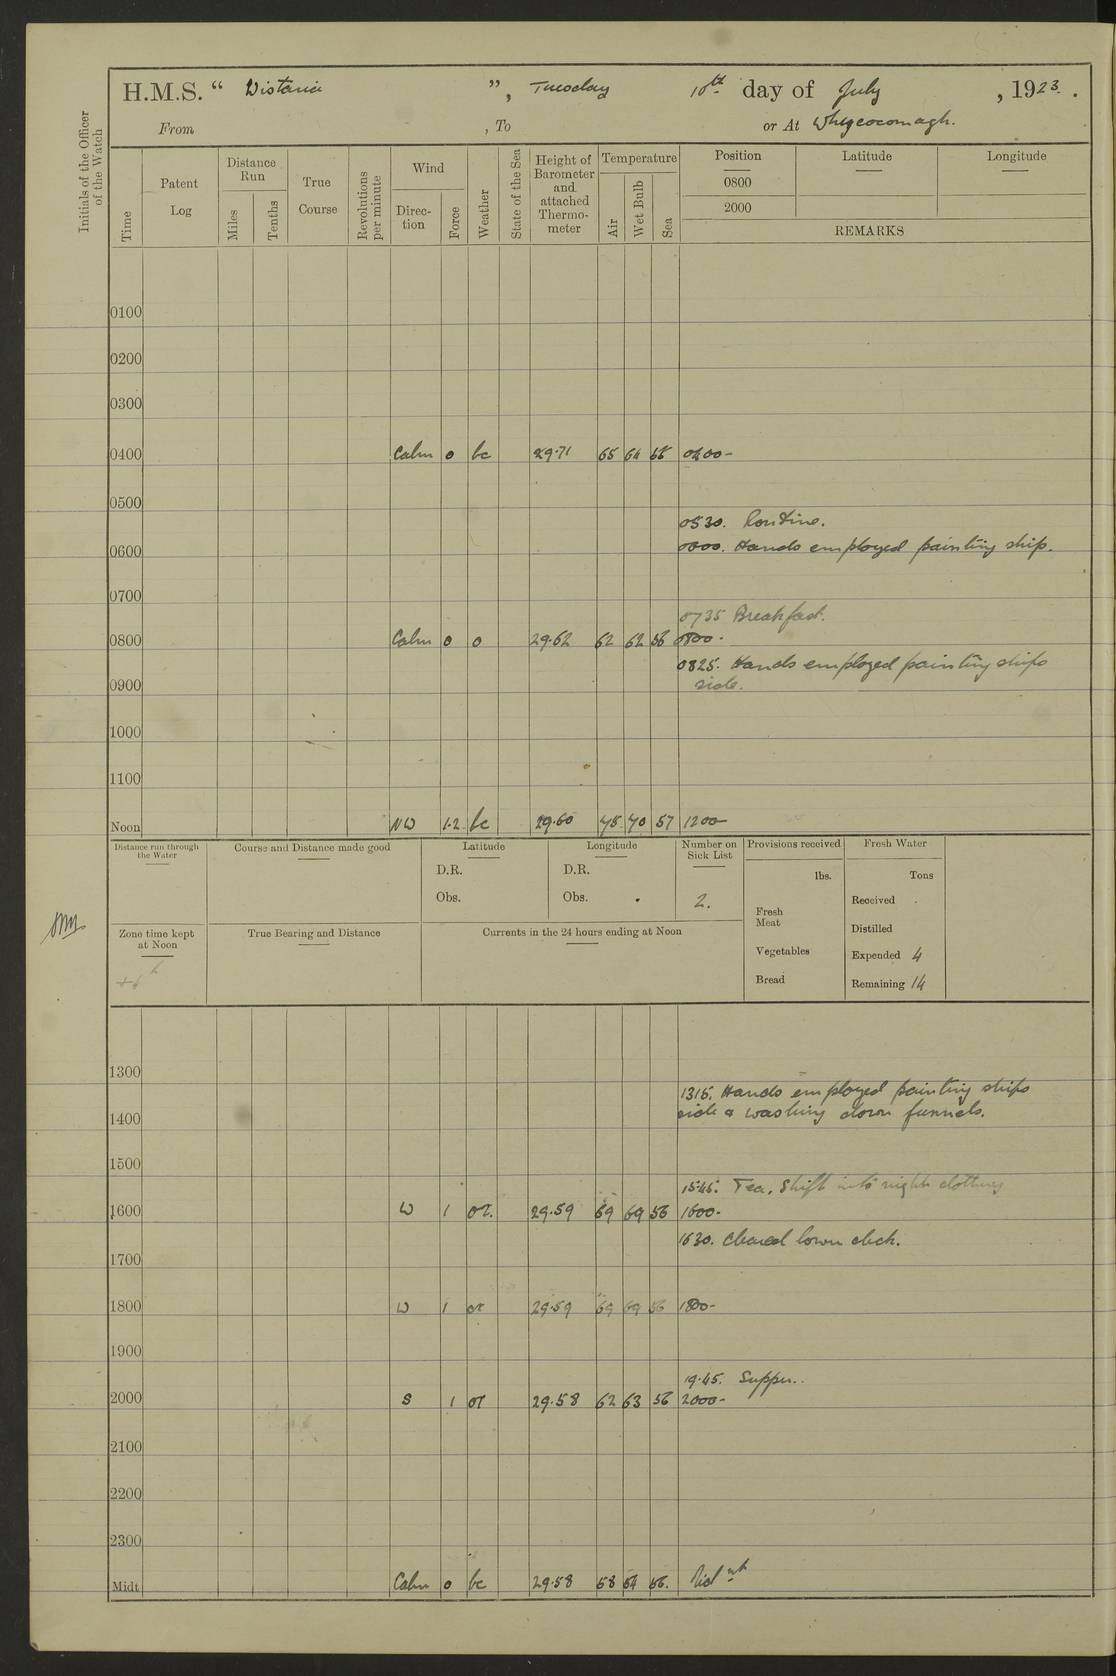 H.M.S. “ Wistaria ”, Tuesday 10th day of July, 1923.
From , To or At Whycocomagh.
Initials of the Officer of the Watch
Time
Patent Log
Distance Run
Miles
Tenths
True Course
Revolutions per minute
Wind
Direction
Force
Weather
State of the Sea
Height of Barometer and attached Thermometer
Temperature
Air
Wet Bulb
Sea
Position
Latitude
Longitude
0800
2000
REMARKS
0100
0200
0300
0400 Calm 0 bc 29.71 65 64 0400-
0500
0530. Routine.
0600 0600. Hands employed painting ship.
0700
0735 Breakfast.
0800 Calm 0 o 29.62 62 62 56 0800-
0825. Hands employed painting ships
side.
0900
1000
1100
Noon NW 1.2 bc 29.60 75 70 57 1200-
Distance run through the Water
Course and Distance made good
Latitude
D.R.
Obs.
Longitude
D.R.
Obs.
Number on Sick List
2.
Provisions received
lbs.
Fresh Meat
Vegetables
Bread
Fresh Water
Tons
Received
Distilled
Expended 4
Remaining 14
Zone time kept at Noon
True Bearing and Distance
Currents in the 24 hours ending at Noon
1300
1315. Hands employed painting ships
side & washing down funnels.
1400
1500
1545. Tea. Shift into night clothing
1600 W 1 or. 29.59 69 69 56 1600-
1630. Cleared lower deck.
1700
1800 W 1 or 29.59 69 69 56 1800-
1900
19.45. Supper.
2000 S 1 or 29.58 62 63 56 2000-
2100
2200
2300
Midt Calm 0 bc 29.58 58 54 56. Midnht